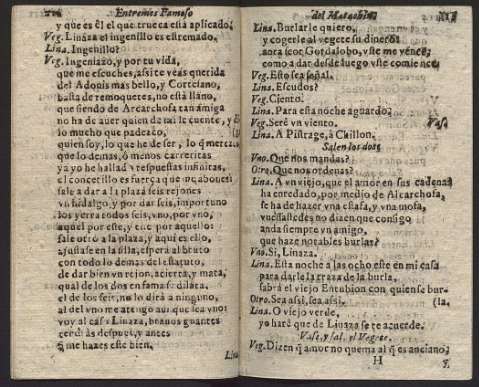 Entremes Famoso
y que es èl el que trueca està aplicado,
Veg. Linaza el ingenillo es estremado.
Lina. Ingenillo?
Veg. Ingeniazo, y por tu vida,
que me escuches, assi te veas querida
del Adonis mas bello, y Cortesano,
basta de remoquetes, no està llano,
que siendo de Arcarchofa tan amiga
no ha de auer quien de mi le cuente, y
lo mucho que padezco,
quien soy, lo que he de ser, lo q̃ merezco
que lo demas, ò menos carreticas
ya yo he hallad respuestas infinitas,
el concetillo es fuerça que
sale a dar a la plaza seis rejones
vn hidalgo, y por dar seis, importuno
los yerra todos seis, vno, por vno,
aquel por este, y este por aquellos
sale otro a la plaza, y aqui es ello,
ajustase en la silla, espera al bruto
con todo lo demas del estatuto,
de dar bien vn rejon, acierta, y mata,
qual de los dos en fama se dilata,
el de los seis, no lo dirà a ninguno,
al del vno me atengo
voy al caso Linaza, buenos guantes
tendràs despues, y antes
q̃ me hazes este bien.
Lin
del Matachin.
Lina. Burlarle quiero,
y cogerle al vegete su dinero:
aora señor Gordalobo, vste me vence,
como a dar desde luego vste comience
Veg. Esto sea señal.
Lina. Escudos?
Veg. Ciento.
Lina. Para esta noche aguardo?
Veg. Serè vn viento. Vase
Lina. A Pistrage, à Chillon.
Salen los dos.
Vno. Que nos mandas?
Otro. Que nos ordenas?
Lina. A vn viejo, que el amor en sus cadenas
ha enredado, por medio de Alcarchofa,
se ha de hazer vna estafa, y vna mofa,
vuessastedes no dizen que consigo
anda siempre vn amigo,
que haze notables burlas?
Vno. Si, Linaza.
Lina. Esta noche a las ocho este en mi casa
para darle la traza de la burla,
sabrà el viejo Entubion con quien se bur-
Otro. Sea assi, sea assi. (la.
Lina. O viejo verde,
yo harè que de Linaza se te acuerde.
Vase, y sal. el Vegete.
Veg. Dizen q̃ amor no quema al q̃ es anciano;
H